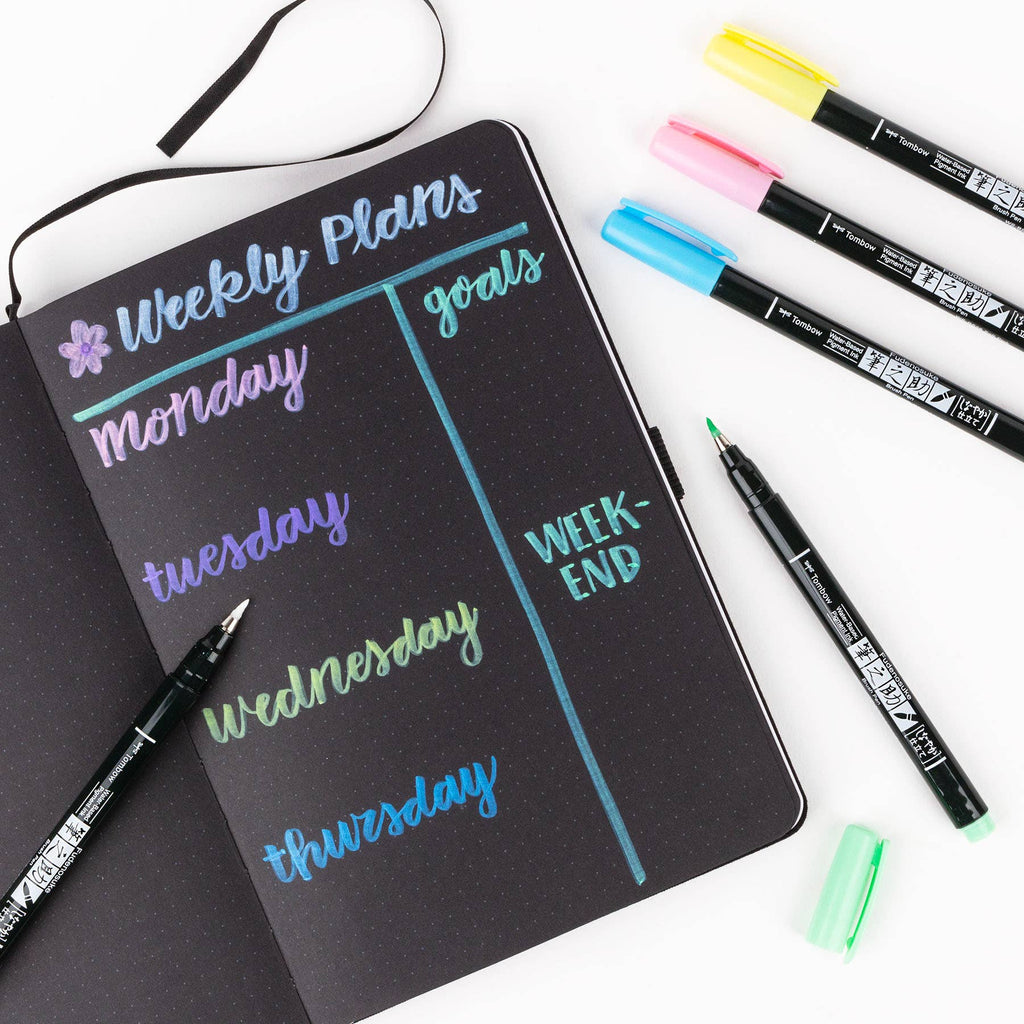 Weekly Plans
goals
monday
tuesday
WEEK-
END
wednesday
thursday
Tombow
Water-Based
Pigment Ink
筆之助
Brush Pen
Tombow
Water-Based
Pigment Ink
Fudenosuke
筆之助
Brush Pen
Tombow
Water-Based
Pigment Ink
Fudenosuke
筆之助
Brush Pen
[しなやか
仕立て]
Tombow
Water-Based
Pigment Ink
Fudenosuke
筆之助
Brush Pen
[しなやか
仕立て]
Tombow
Water-Based
Pigment Ink
Fudenosuke
筆之助
Brush Pen
[しなやか
仕立て]